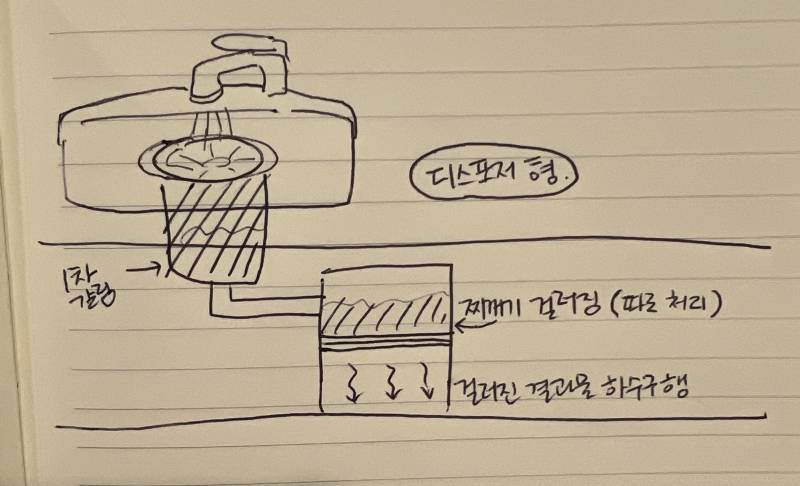 디스포저 형.
1차
갈링
찌꺼기 걸러짐 (따로 처리)
걸러진 결과물 하수구행